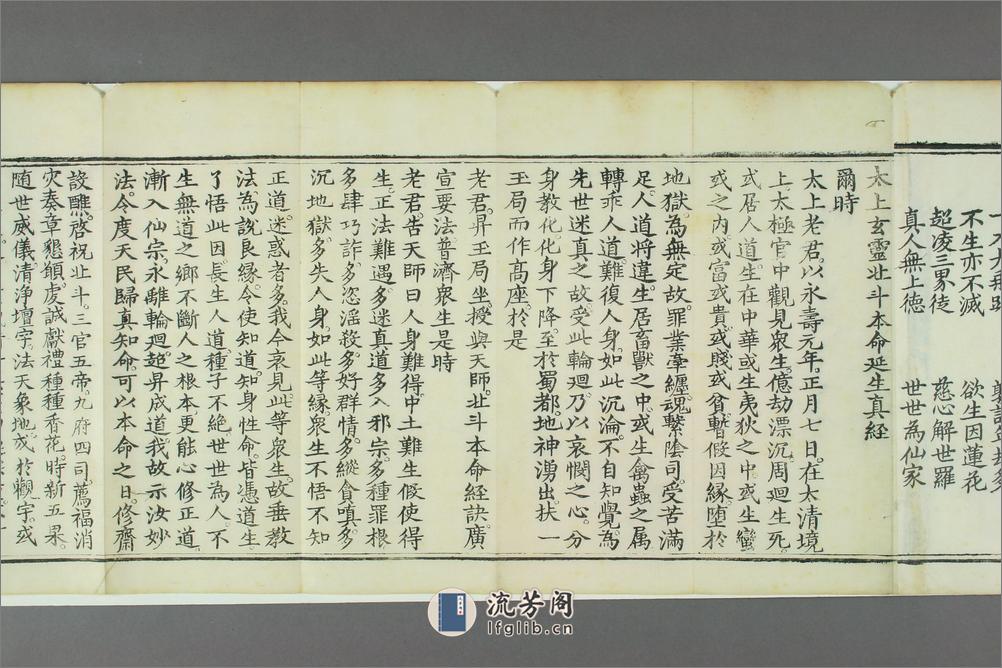 不生亦不滅 欲生因蓮花
超凌三界徒 慈心解世羅
真人無上德 世世為仙家
太上玄靈北斗本命延生真經
爾時
太上老君以永壽元年正月七日在太清境
上太極宮中觀見衆生億劫漂沉周迴生死
或居人道生在中華或生夷狄之中或生蠻
戎之内或富或貴或賤或貧暫假因緣墮於
地獄為無定故罪業牽纏魂繫陰司受苦滿
足人道將違生居畜獸之中或生禽蟲之属
轉乖人道難復人身如此沉淪不自知覺為
先世迷真之故受此輪廻乃以哀憫之心分
身教化化身下降至於蜀都地神湧出扶一
玉局而作高座於是
老君昇玉局坐授與天師北斗本命經訣廣
宣要法普濟衆生是時
老君告天師曰人身難得中土難生假使得
生正法難遇多迷真道多入邪宗多種罪根
多肆巧詐多恣滛殺多好群情多縱貪嗔多
沉地獄多失人身如此等緣衆生不悟不知
正道迷惑者多我今哀見此等衆生故垂教
法為說良緣令使知道知身性命皆憑道生
了悟此因長生人道種子不絕世世為人不
生無道之鄉不斷人之根本更能心修正道
漸入仙宗永離輪廻超昇成道我故示汝妙
法令度天民歸真知命可以本命之日修齋
設醮啓祝北斗三官五帝九府四司薦福消
灾奏章懇願虔誠獻禮種種香花時新五果
随世威儀清淨壇宇法天象地或於觀宇或
流芳阁
lfglib.cn